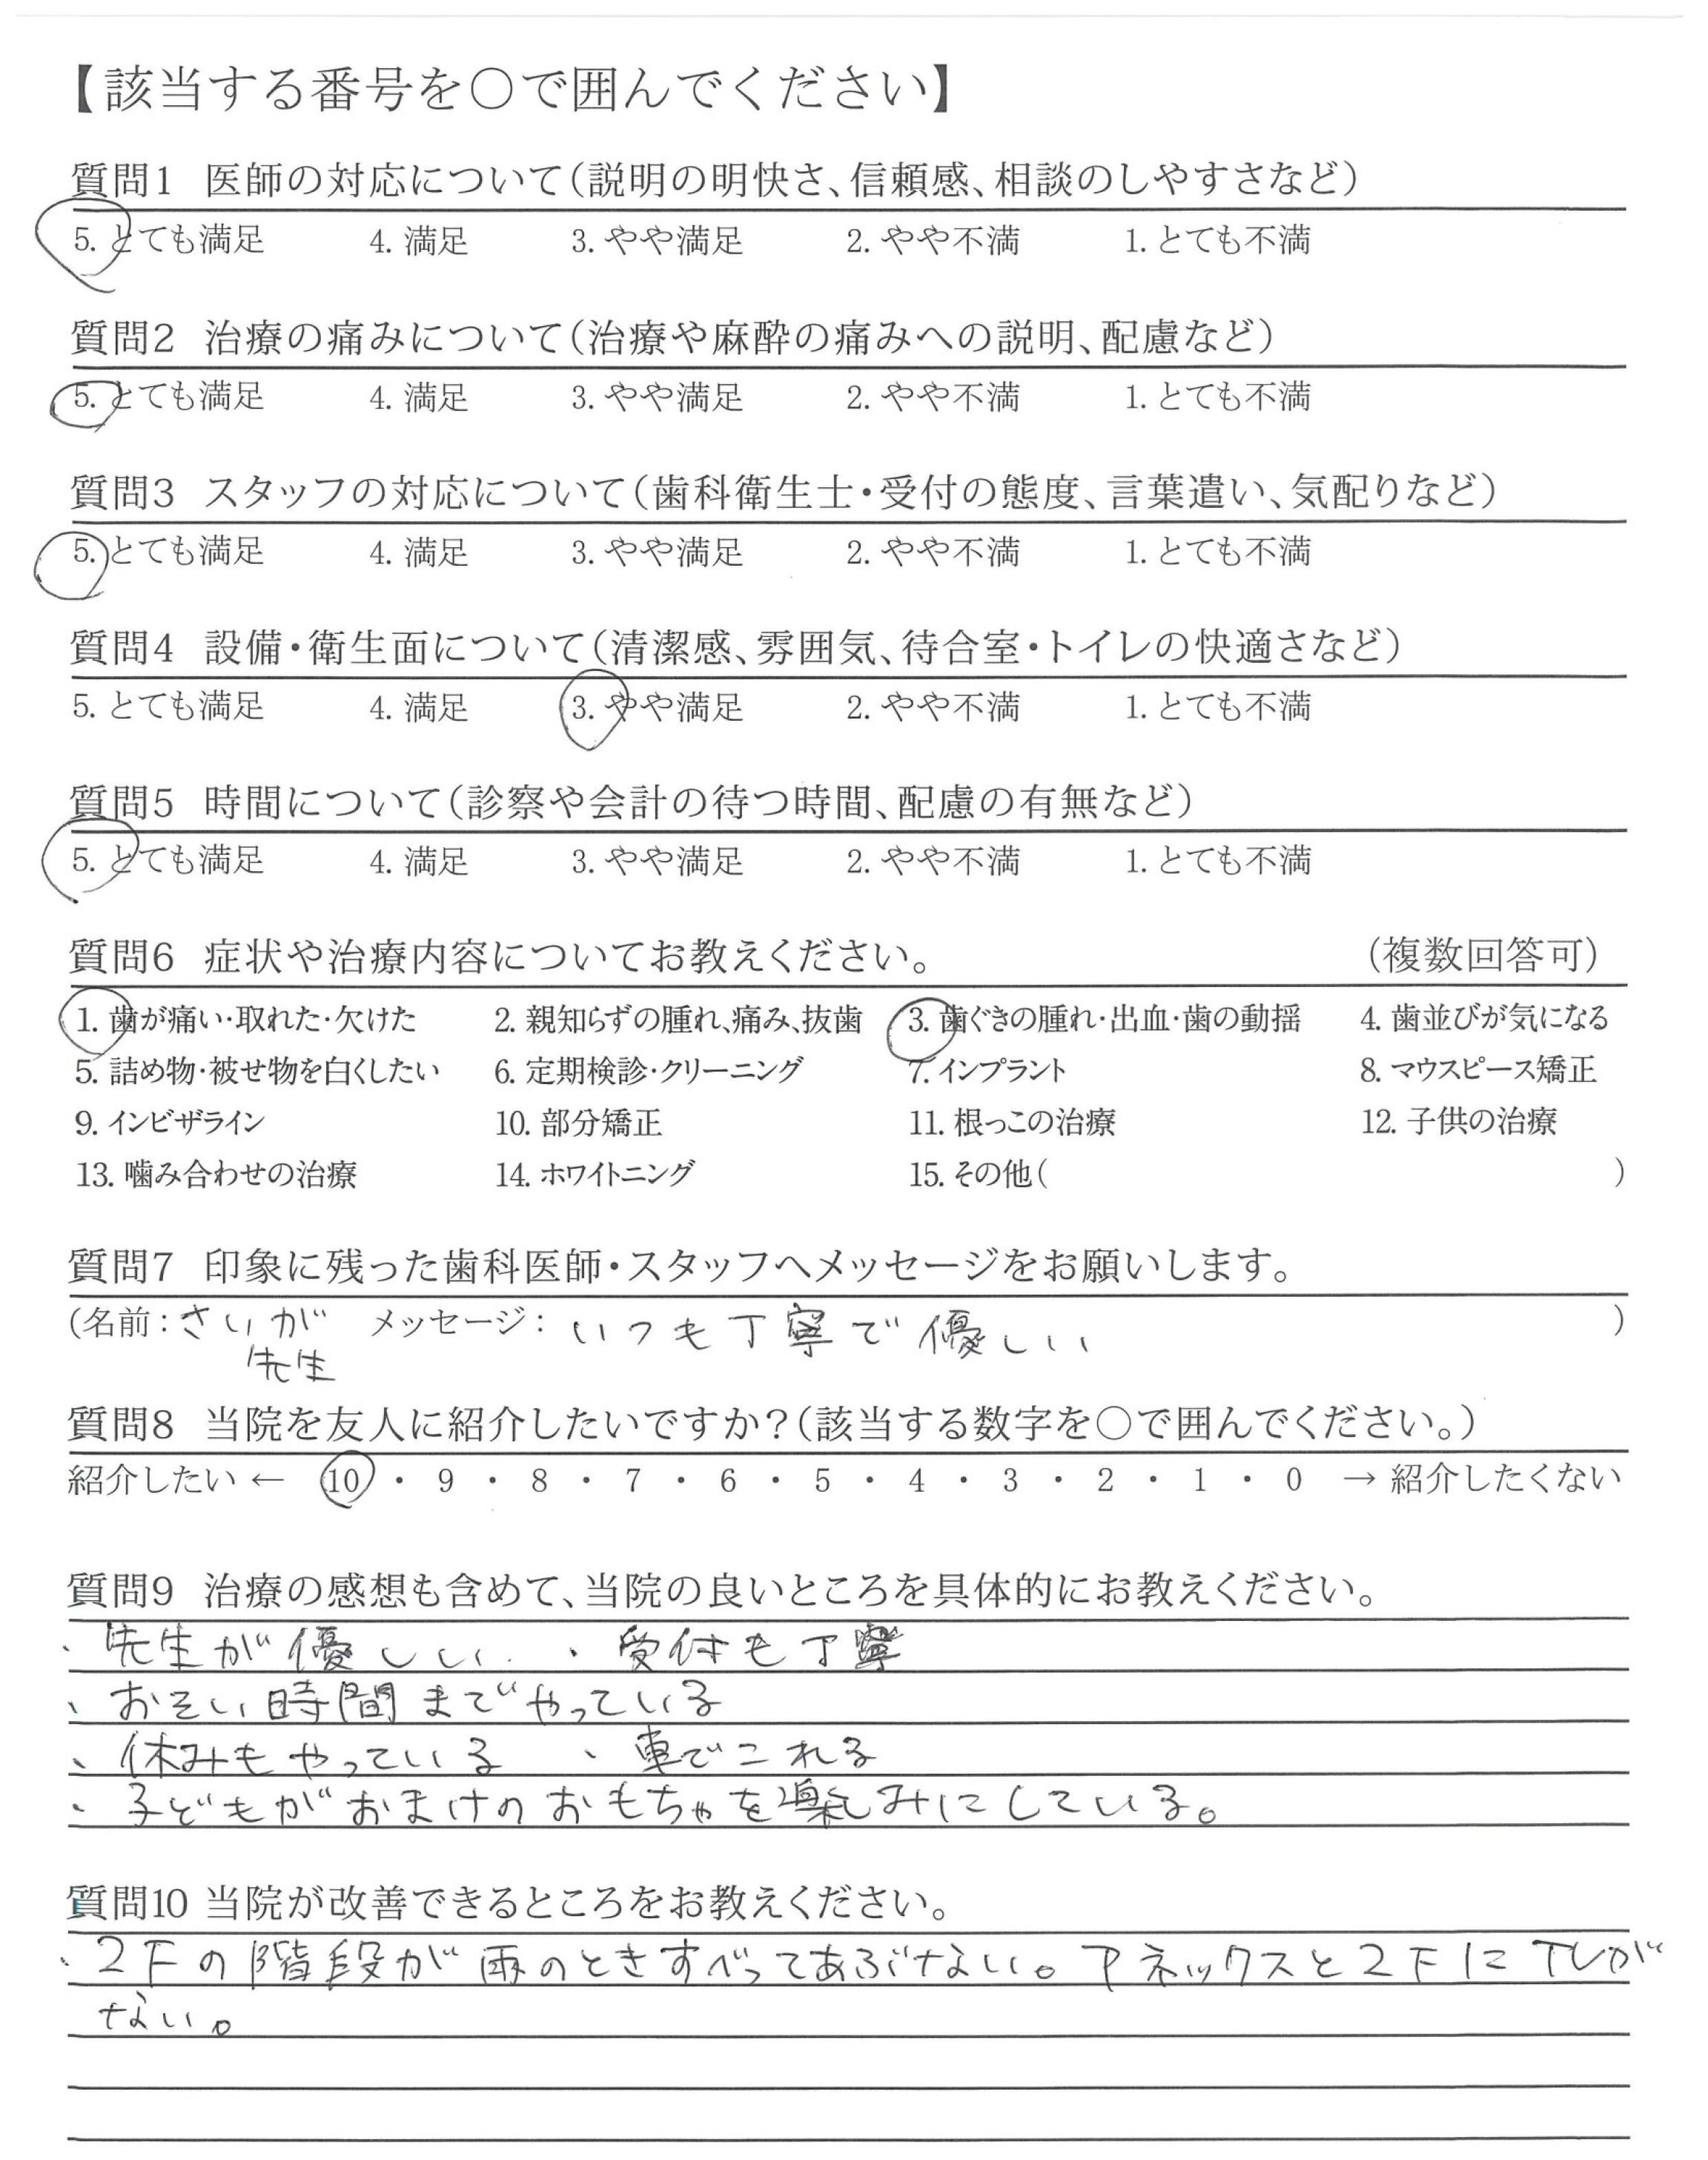 【該当する番号を○で囲んでください】
質問1 医師の対応について（説明の明快さ、信頼感、相談のしやすさなど）
5. とても満足 4. 満足 3. やや満足 2. やや不満 1. とても不満
質問2 治療の痛みについて（治療や麻酔の痛みへの説明、配慮など）
5. とても満足 4. 満足 3. やや満足 2. やや不満 1. とても不満
質問3 スタッフの対応について（歯科衛生士・受付の態度、言葉遣い、気配りなど）
5. とても満足 4. 満足 3. やや満足 2. やや不満 1. とても不満
質問4 設備・衛生面について（清潔感、雰囲気、待合室・トイレの快適さなど）
5. とても満足 4. 満足 3. やや満足 2. やや不満 1. とても不満
質問5 時間について（診察や会計の待つ時間、配慮の有無など）
5. とても満足 4. 満足 3. やや満足 2. やや不満 1. とても不満
質問6 症状や治療内容についてお教えください。 （複数回答可）
1. 歯が痛い・取れた・欠けた 2. 親知らずの腫れ、痛み、抜歯 3. 歯ぐきの腫れ・出血・歯の動揺 4. 歯並びが気になる
5. 詰め物・被せ物を白くしたい 6. 定期検診・クリーニング 7. インプラント 8. マウスピース矯正
9. インビザライン 10. 部分矯正 11. 根っこの治療 12. 子供の治療
13. 噛み合わせの治療 14. ホワイトニング 15. その他（ ）
質問7 印象に残った歯科医師・スタッフへメッセージをお願いします。
（名前：さいが メッセージ：いつも丁寧で優しい ）
先生
質問8 当院を友人に紹介したいですか？（該当する数字を○で囲んでください。）
紹介したい ← 10 ・ 9 ・ 8 ・ 7 ・ 6 ・ 5 ・ 4 ・ 3 ・ 2 ・ 1 ・ 0 → 紹介したくない
質問9 治療の感想も含めて、当院の良いところを具体的にお教えください。
・先生が優しい ・受付も丁寧
・おそい時間までやっている
・休みもやっている ・車でこれる
・子どもがおまけのおもちゃを楽しみにしている。
質問10 当院が改善できるところをお教えください。
・2Fの階段が雨のときすべってあぶない。アネックスと2FにTVが
ない。